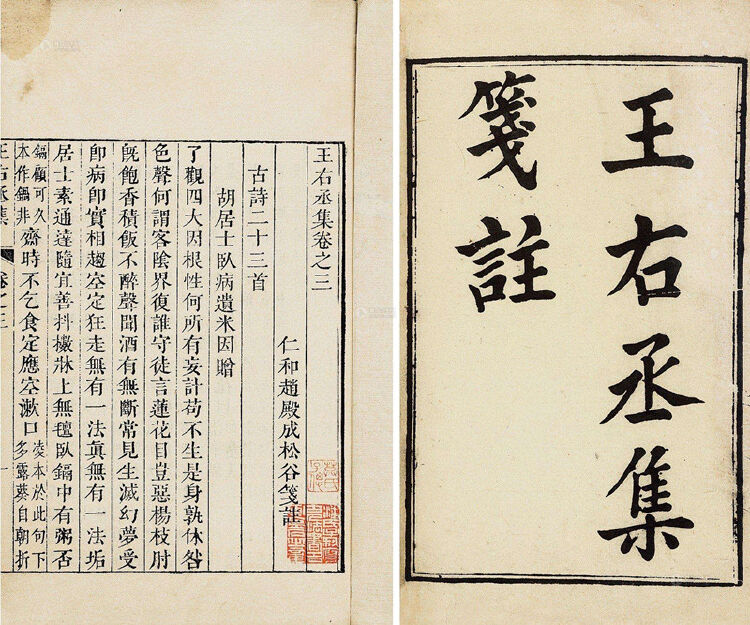 王右丞集
箋註
王右丞集卷之三
仁和趙殿成松谷箋註
古詩二十三首
胡居士臥病遺米因贈
了觀四大因根性何所有妄計苟不生是身孰休咎
色聲何謂客陰界復誰守徒言蓮花目豈惡楊枝肘
旣飽香積飯不醉聲聞酒有無斷常見生滅幻夢受
卽病卽實相趨空定狂走無有一法眞無有一法垢
居士素通達隨宜善抖擻牀上無氊臥鎘中有粥否
鎘顧可久本作鍋非齋時不乞食定應空漱口凌本於此句下多露葵自朝折
王右丞集 卷之三 一